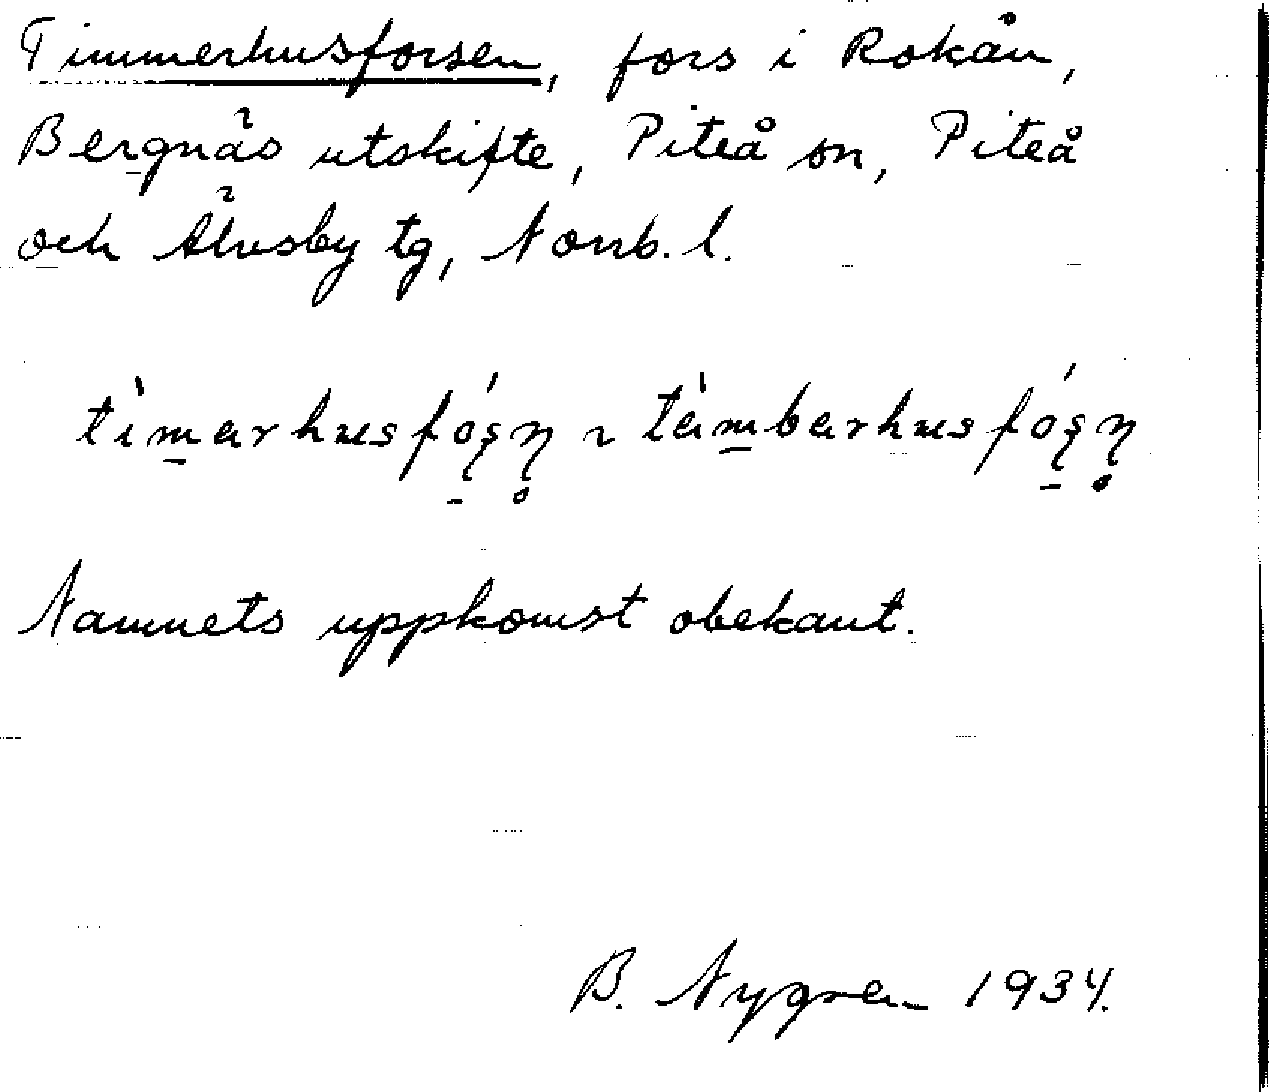 Timmerhusforsen, fors i Rokån,
Bergnäs utskifte, Piteå sn, Piteå
och Älvsby tg, Norrb. l.
tìm̱arhusfó̱ʂņ̊ ~ tàm̱barhusfó̱ʂņ̊
Namnets uppkomst obekant.
B. Nygren 1934.